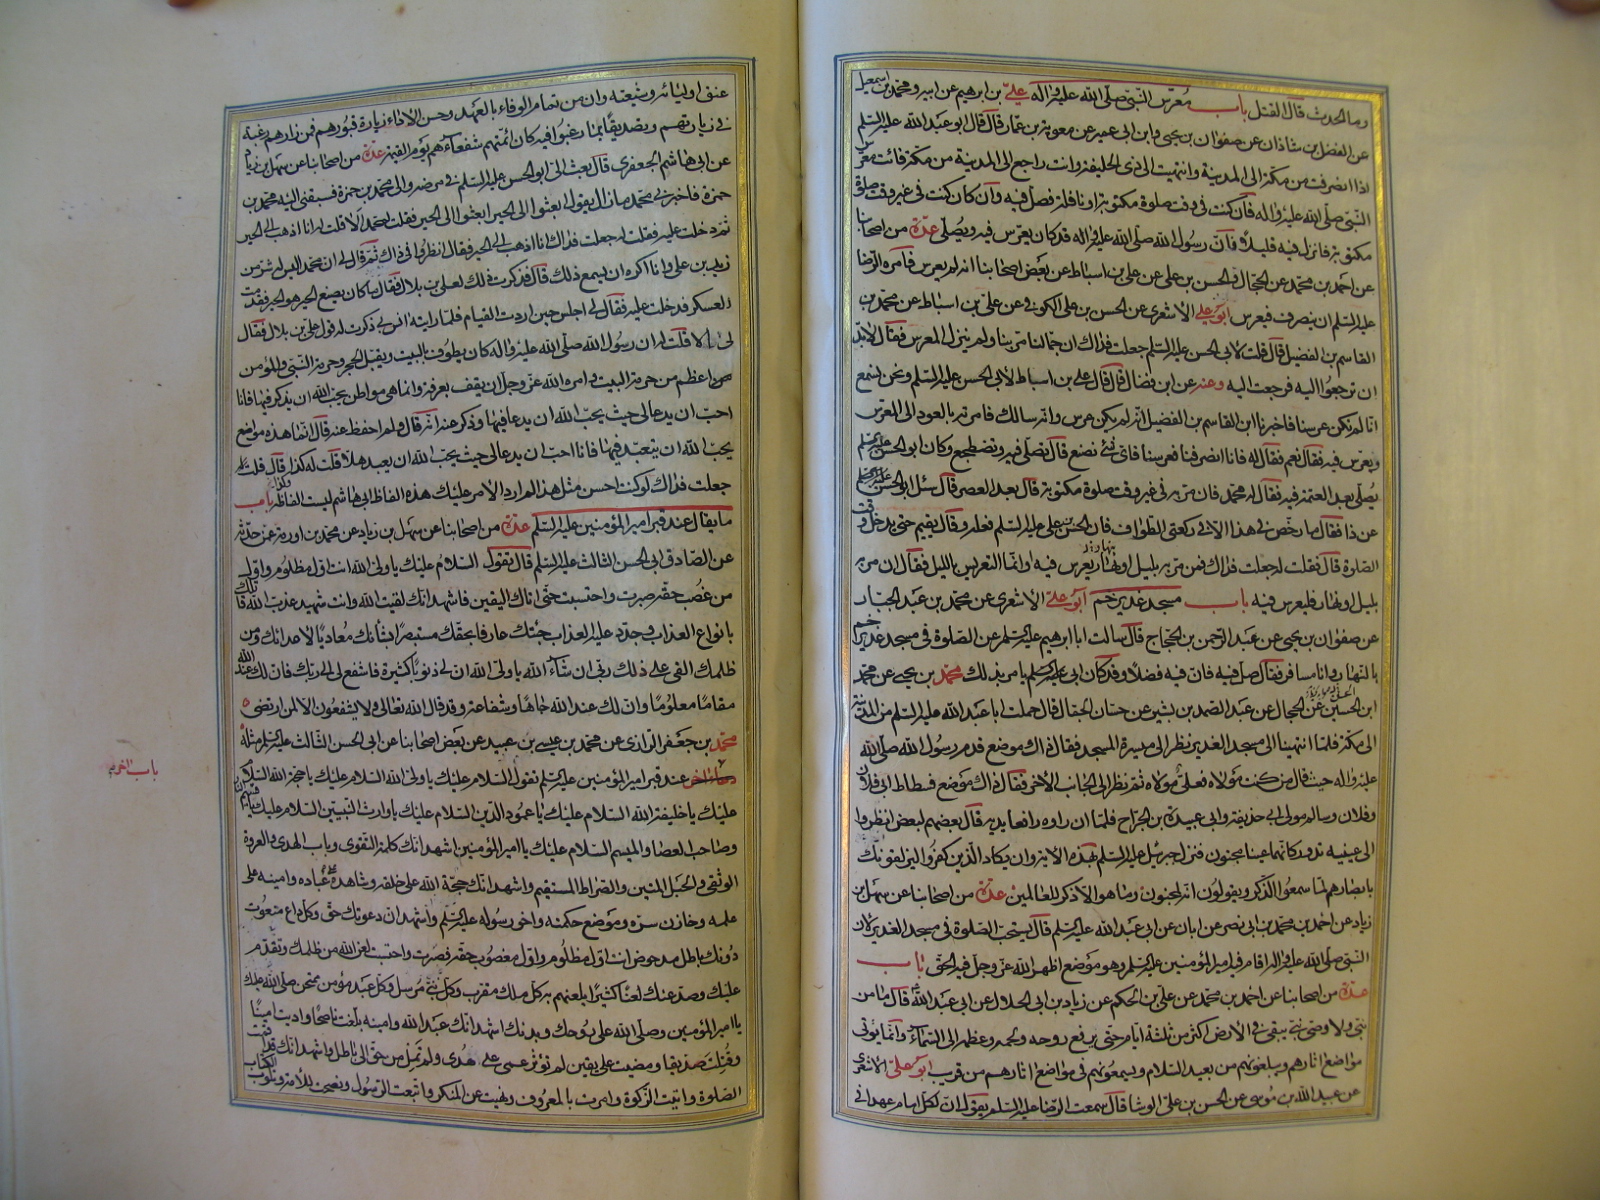 وما الحدث قال القتل باب معرس النبي صلى الله عليه واله علي بن ابراهيم عن ابيه ومحمد بن اسمعيل
عن الفضل بن شاذان عن صفوان بن يحيى وابن ابي عمير عن معوية بن عمار قال قال ابو عبد الله عليه السلم
اذا انصرفت من مكة الى المدينة وانتهيت الى ذي الحليفة وانت راجع الى المدينة من مكة فائت معرس
النبي صلى الله عليه واله فان كنت في وقت صلوة مكتوبة او نافلة فصل فيه وان كان كنت في غير وقت صلوة
مكتوبة فانزل فيه قليلا فان رسول الله صلى الله عليه واله قد كان يعرس فيه ويصلي عدة من اصحابنا
عن احمد بن محمد عن الحجال والحسن بن علي عن علي بن اسباط عن بعض اصحابنا انه لم يعرس فامره الرضا
عليه السلم ان ينصرف فيعرس ابو علي الاشعري عن الحسن بن علي الكوفي وعن علي بن اسباط عن محمد بن
القاسم بن الفضيل قال قلت لابي الحسن عليه السلم جعلت فداك ان جمالنا مر بنا ولم ينزل المعرس فقال لا بد
ان ترجعوا اليه فرجعت اليه وعنه عن ابن فضال قال قال علي بن اسباط لابي الحسن عليه السلم ونحن نسمع
انا لم نكن عرسنا فاخبرنا ابن القاسم بن الفضيل انه لم يكن عرس وانه سالك فامرته بالعود الى المعرس
ويعرس فيه فقال نعم فقال له فانا انصرفنا فعرسنا فاي شئ نصنع قال تصلي فيه وتضطجع وكان ابو الحسن عليه السلم
يصلي بعد العتمة فيه فقال له محمد فان مر به في غير وقت صلوة مكتوبة قال بعد العصر قال سئل ابو الحسن عليه السلم
عن ذا فقال ما رخص في هذا الا في ركعتي الطواف فان الحسن بن علي عليه السلم فعله وقال يقيم حتى يدخل وقت
الصلوة قال فقلت له جعلت فداك فمن مر به بليل او نهار يعرس فيه وانما التعريس بالليل فقال ان مر به
بليل او نهار فليعرس فيه باب مسجد غدير خم ابو علي الاشعري عن محمد بن عبد الجبار
عن صفوان بن يحيى عن عبد الرحمن بن الحجاج قال سالت ابا ابراهيم عليه السلم عن الصلوة في مسجد غدير خم
بالنهار وانا مسافر فقال صل فيه فان فيه فضلا وقد كان ابي عليه السلم يامر بذلك محمد بن يحيى عن محمد
ابن الحسين عن الحجال عن عبد الصمد بن بشير عن حسان الجمال قال حملت ابا عبد الله عليه السلم من المدينة
الى مكة فلما انتهينا الى مسجد الغدير نظر الى ميسرة المسجد فقال ذاك موضع قدم رسول الله صلى الله
عليه واله حيث قال من كنت مولاه فعلي مولاه ثم نظر الى الجانب الآخر فقال ذاك موضع فسطاط ابي فلان
وفلان وسالم مولى ابي حذيفة وابي عبيدة بن الجراح فلما ان راوه رافعا يديه قال بعضهم لبعض انظروا
الى عينيه تدور كانهما عينا مجنون فنزل جبرئيل عليه السلم بهذه الاية وان يكاد الذين كفروا ليزلقونك
بابصارهم لما سمعوا الذكر ويقولون انه لمجنون وما هو الا ذكر للعالمين عدة من اصحابنا عن سهل بن
زياد عن احمد بن محمد بن ابي نصر عن ابان عن ابي عبد الله عليه السلم قال يستحب الصلوة في مسجد الغدير لان
النبي صلى الله عليه واله اقام فيه امير المؤمنين عليه السلم وهو موضع اظهر الله عز وجل فيه الحق باب
عدة من اصحابنا عن احمد بن محمد عن علي بن الحكم عن زياد بن ابي الحلال عن ابي عبد الله قال ما من
نبي ولا وصي نبي يبقى في الارض اكثر من ثلثة ايام حتى يرفع روحه ولحمه وعظمه الى السماء وانما يؤتى
مواضع اثارهم ويبلغونهم من بعيد السلام ويسمعونهم في مواضع اثارهم من قريب ابو علي الاشعري
عن عبيد الله بن موسى عن الحسن بن علي الوشا قال سمعت الرضا عليه السلم يقول ان لكل امام عهدا في
عنق اوليائه وشيعته وان من تمام الوفاء بالعهد وحسن الاداء زيارة قبورهم فمن زارهم رغبة
في زيارتهم وتصديقا بما رغبوا فيه كان ائمتهم شفعاءهم يوم القيمة عدة من اصحابنا عن سهل بن زياد
عن ابي هاشم الجعفري قال بعث الى ابو الحسن عليه السلم في مرضه والى محمد بن حمزة فسبقني اليه محمد بن
حمزة فاخبرني محمد ما زال يقول ابعثوا الى الحير ابعثوا الى الحير فقلت لمحمد الا قلت له انا اذهب الى الحير
ثم دخلت عليه فقلت له جعلت فداك انا اذهب الى الحير فقال انظروا في ذاك ثم قال لي ان محمدا ليس له شر من
زيد بن علي وانا اكره ان يسمع ذلك قال فذكرت ذلك لعلي بن بلال فقال ما كان يصنع الحير هو الحير فقدمت
العسكر فدخلت عليه فقال لي اجلس حين اردت القيام فلما رايته انس بي ذكرت له قول علي بن بلال فقال
لي الا قلت له ان رسول الله صلى الله عليه واله كان يطوف بالبيت ويقبل الحجر وحرمة النبي والمؤمن
اعظم من حرمة البيت وامره الله عز وجل ان يقف بعرفة وانما هي مواطن يحب الله ان يذكر فيها فانا
احب ان يدعا لي حيث يحب الله ان يدعا فيها وذكر عنه انه قال ولم احفظ عنه قال انما هذه مواضع
يحب الله ان يتعبد فيها فانا احب ان يدعا لي حيث يحب الله ان يعبد هلا قلت له كذا قال قلت له
جعلت فداك لو كنت احسن مثل هذا لم ارد الامر عليك هذه الفاظ ابي هاشم ليست الفاظه باب
ما يقال عند قبر امير المؤمنين عليه السلم عدة من اصحابنا عن سهل بن زياد عن محمد بن اورمة عمن حدثه
عن الصادق ابي الحسن الثالث عليه السلم قال تقول السلام عليك يا ولي الله انت اول مظلوم واول
من غصب حقه صبرت واحتسبت حتى اتاك اليقين فاشهد انك لقيت الله وانت شهيد عذب الله قاتلك
بانواع العذاب وجدد عليه العذاب جئتك عارفا بحقك مستبصرا بشانك معاديا لاعدائك ومن
ظلمك القى على ذلك ربي ان شاء الله يا ولي الله ان لي ذنوبا كثيرة فاشفع لي الى ربك فان لك عند الله
مقاما معلوما وان لك عند الله جاها وشفاعة وقد قال الله تعالى ولا يشفعون الا لمن ارتضى
محمد بن جعفر الرازي عن محمد بن عيسى بن عبيد عن بعض اصحابنا عن ابي الحسن الثالث عليه السلم مثله
دعاء اخر عند قبر امير المؤمنين عليه السلم تقول السلام عليك يا ولي الله السلام عليك يا حجة الله السلام
باب اخر منه
عليك يا خليفة الله السلام عليك يا عمود الدين السلام عليك يا وارث النبيين السلام عليك يا قسيم النار
وصاحب العصا والميسم السلام عليك يا امير المؤمنين اشهد انك كلمة التقوى وباب الهدى والعروة
الوثقى والحبل المتين والصراط المستقيم واشهد انك حجة الله على خلقه وشاهده على عباده وامينه على
علمه وخازن سره وموضع حكمته واخو رسوله عليه السلم واشهد ان دعوتك حق وكل داع منعوت
دونك باطل مدحوض انت اول مظلوم واول مغصوب حقه فصبرت واحتسبت لعن الله من ظلمك وتقدم
عليك وصد عنك لعنا كثيرا يلعنهم به كل ملك مقرب وكل نبي مرسل وكل عبد مؤمن ممتحن صلى الله عليك
يا امير المؤمنين وصلى الله على روحك وبدنك اشهد انك عبد الله وامينه بلغت ناصحا واديت امينا
وقتلت صديقا ومضيت على يقين لم تؤثر عمى على هدى ولم تمل من حق الى باطل واشهد انك قد اقمت
الصلوة واتيت الزكوة وامرت بالمعروف ونهيت عن المنكر واتبعت الرسول ونصحت للامة وتلوت الكتاب